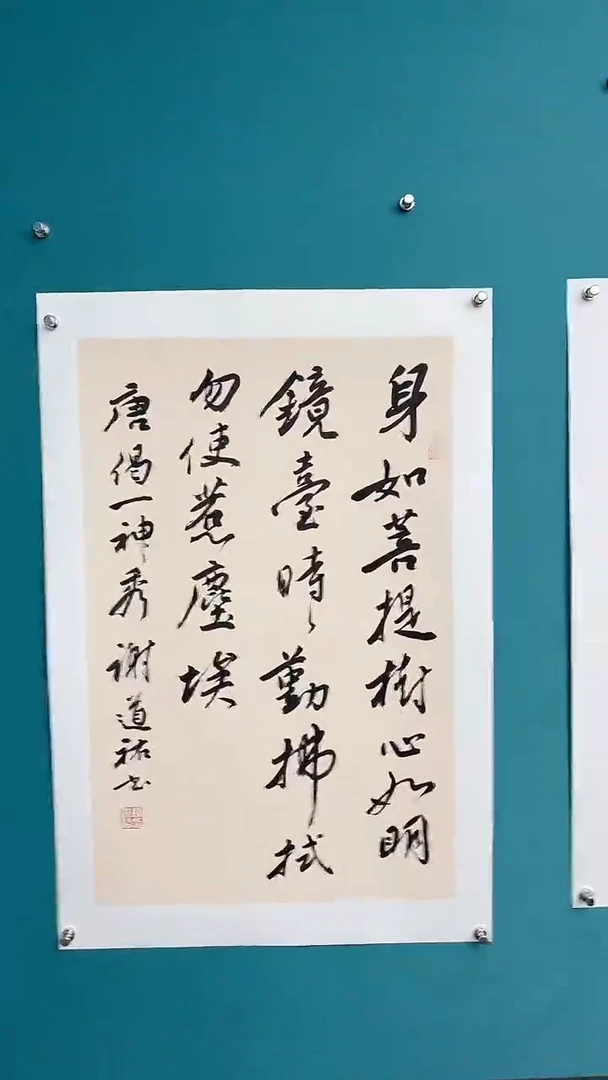 身如菩提樹心如明
鏡臺時時勤拂拭
勿使惹塵埃
唐偈一神秀 謝道祐书